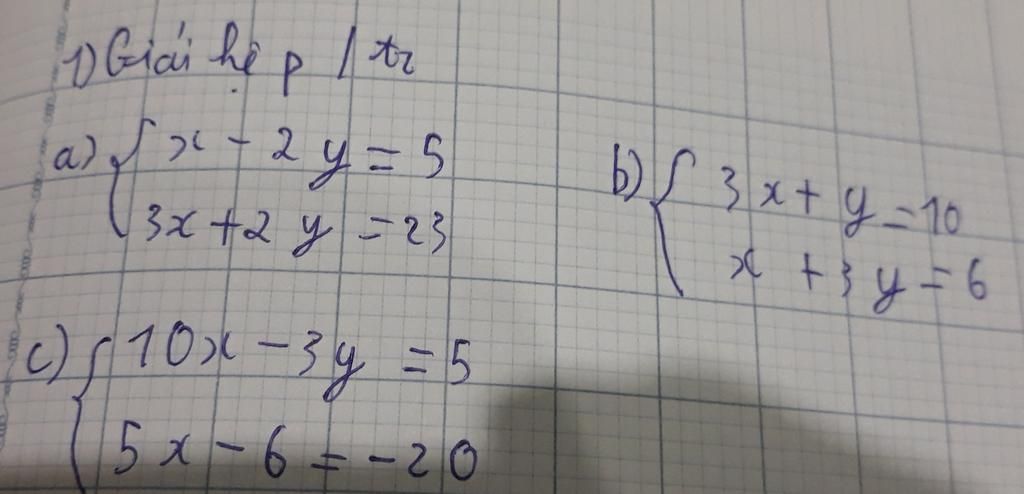 1) Giải hệ p/tr
a) { x - 2y = 5
3x + 2y = 23
b) { 3x + y = 10
x + 3y = 6
c) { 10x - 3y = 5
5x - 6 = -20